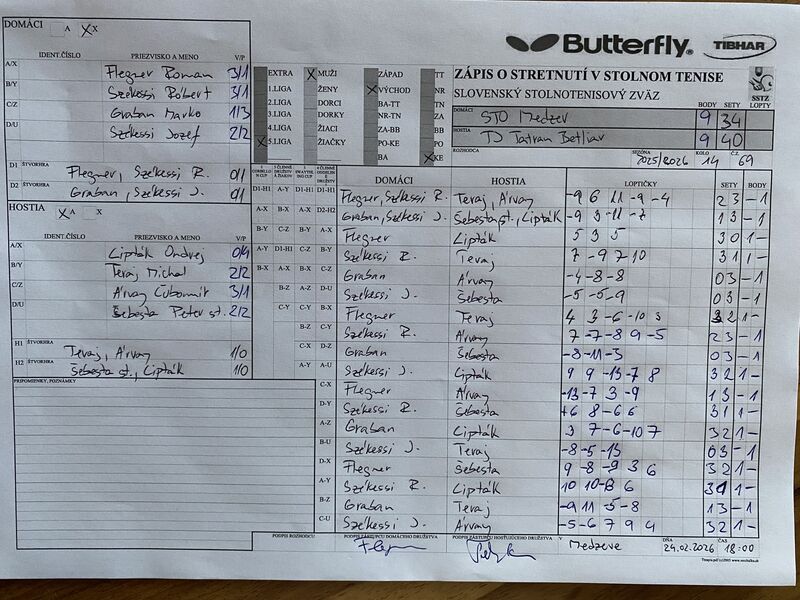 DOMÁCI A X X
IDENT.ČÍSLO PRIEZVISKO A MENO V/P
A/X Flegner Roman 3/1
B/Y Székessi Róbert 3/1
C/Z Graban Marko 1/3
D/U Székessi Jozef 2/2
D1 ŠTVORHRA Flegner, Székessi R. 0/1
D2 ŠTVORHRA Graban, Székessi J. 0/1
HOSTIA X A X
IDENT.ČÍSLO PRIEZVISKO A MENO V/P
A/X Lipták Ondrej 0/4
B/Y Teraj Michal 2/2
C/Z Árvay Ľubomír 3/1
D/U Šebesta Peter st. 2/2
H1 ŠTVORHRA Teraj, Árvay 1/0
H2 ŠTVORHRA Šebesta st., Lipták 1/0
PRIPOMIENKY, POZNÁMKY
Butterfly TIBHAR
EXTRA X MUŽI ZÁPAD TT
1.LIGA ŽENY X VÝCHOD NR
2.LIGA DORCI BA-TT TN
3.LIGA DORKY NR-TN ZA
4.LIGA ŽIACI ZA-BB BB
X 5.LIGA ŽIAČKY PO-KE PO
BA X KE
ZÁPIS O STRETNUTÍ V STOLNOM TENISE
SLOVENSKÝ STOLNOTENISOVÝ ZVÄZ
SSTZ
BODY SETY LOPTY
DOMÁCI STO Medzev 9 34
HOSTIA TJ Tatran Betliar 9 40
ROZHODCA SEZÓNA 2025/2026 KOLO 14 Č.Z. 69
DOMÁCI HOSTIA LOPTIČKY SETY BODY
D1-H1 A-Y D1-H1 D1-H1 Flegner, Székessi R. Teraj, Árvay -9 6 11 -9 -4 2 3 - 1
A-X B-X A-X D2-H2 Graban, Székessi J. Šebesta st., Lipták -9 3 -11 -7 1 3 - 1
B-Y C-Z B-Y A-X Flegner Lipták 5 3 5 3 0 1 -
A-Y D1-H1 C-Z B-Y Székessi R. Teraj 7 -9 7 10 3 1 1 -
B-X A-X B-X C-Z Graban Árvay -4 -8 -8 0 3 - 1
B-Z A-Z D-U Székessi J. Šebesta -5 -5 -9 0 3 - 1
C-Y C-Y B-X Flegner Teraj 4 3 -6 -10 3 3 2 1 -
B-Z C-Y Székessi R. Árvay 7 -7 -8 9 -5 2 3 - 1
C-X D-Z Graban Šebesta -8 -11 -3 0 3 - 1
A-Y A-U Székessi J. Lipták 9 9 -13 -7 8 3 2 1 -
C-X Flegner Árvay -13 -7 3 -9 1 3 - 1
D-Y Székessi R. Šebesta 6 8 -6 6 3 1 1 -
A-Z Graban Lipták 3 7 -6 -10 7 3 2 1 -
B-U Székessi J. Teraj -8 -5 -13 0 3 - 1
D-X Flegner Šebesta 9 -8 -9 3 6 3 2 1 -
A-Y Székessi R. Lipták 10 10 -8 6 3 1 1 -
B-Z Graban Teraj -9 11 -5 -8 1 3 - 1
C-U Székessi J. Árvay -5 -6 7 9 4 3 2 1 -
PODPIS ROZHODCU PODPIS ZÁSTUPCU DOMÁCEHO DRUŽSTVA PODPIS ZÁSTUPCU HOSŤUJÚCEHO DRUŽSTVA V Medzeve DŇA 24.02.2026 ČAS 18:00